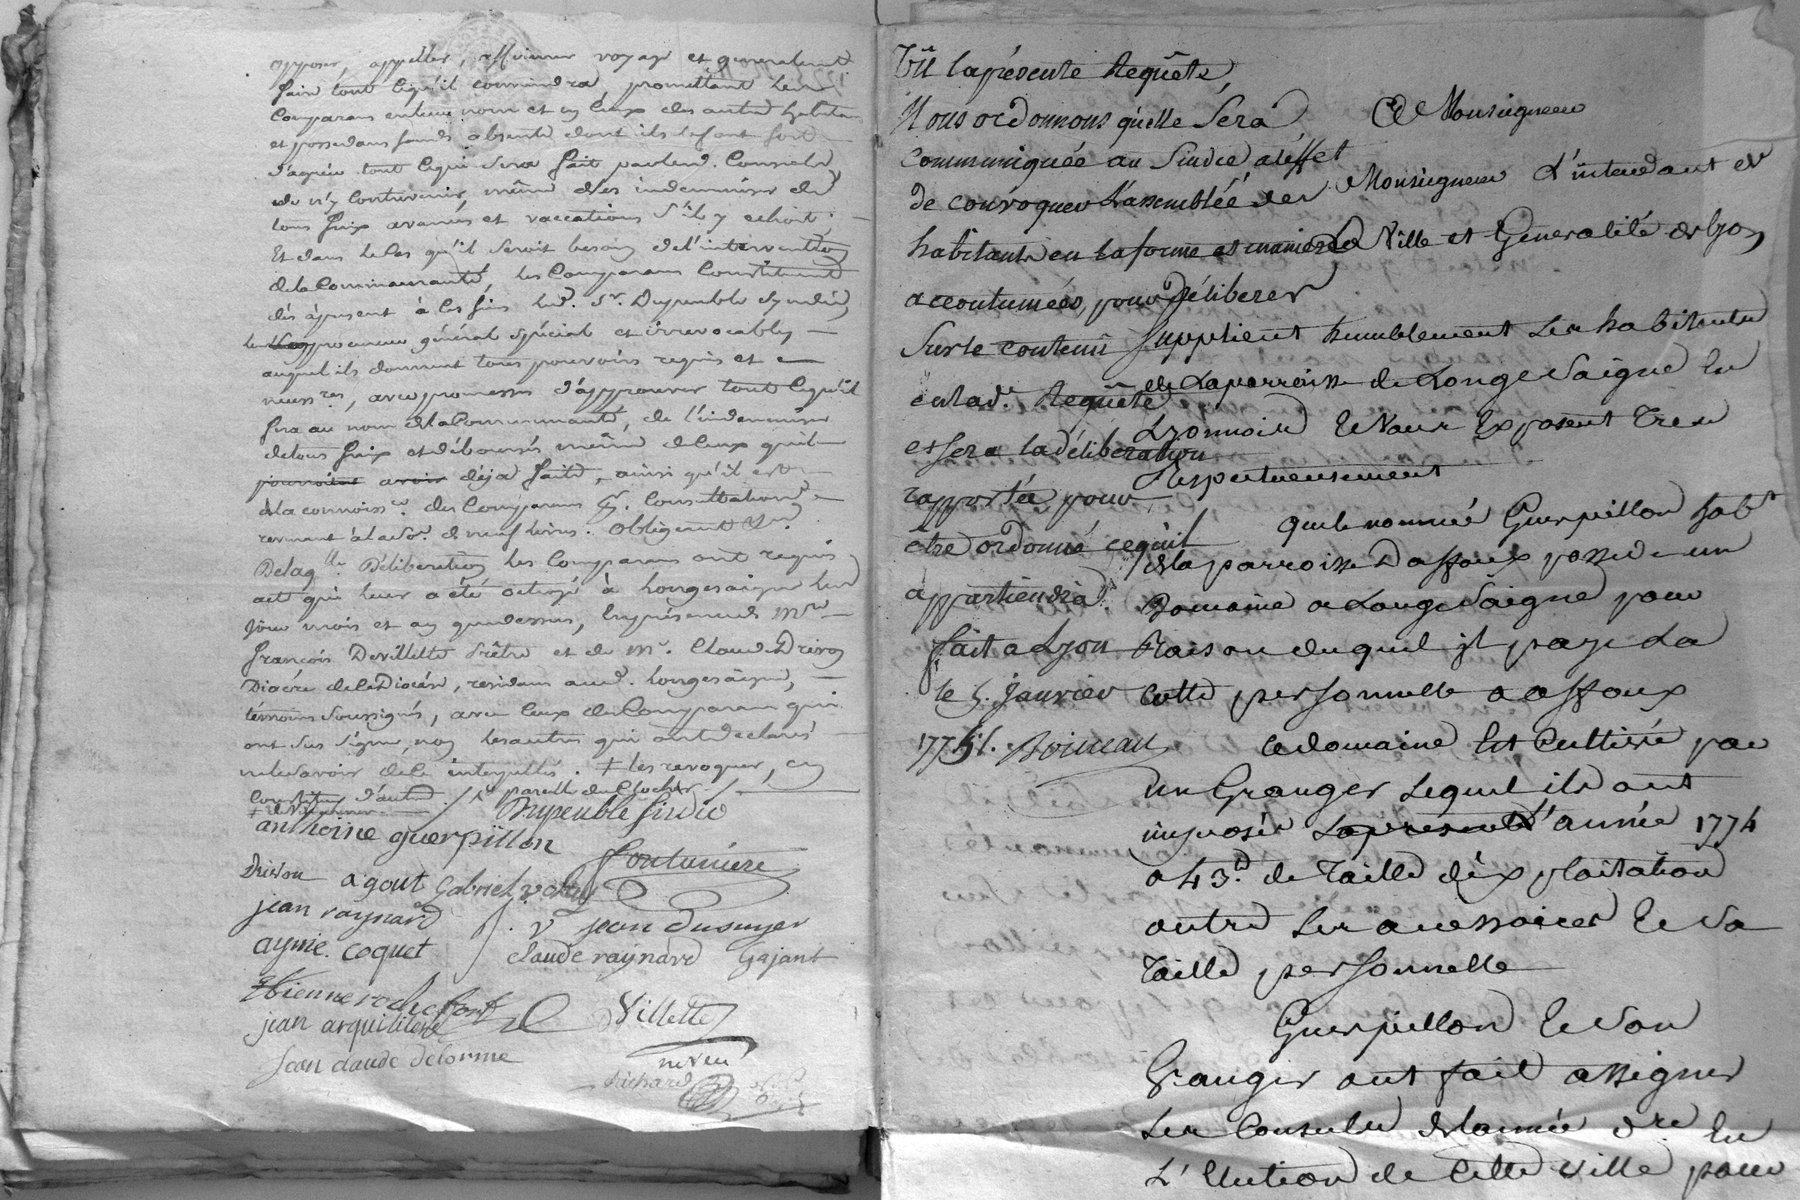 opposer, appeller, affirmer voyage et generalement
faire tout ce qu'il conviendra, promettant les
Comparans en leur nom et en ceux des autres habitans
et possedans fonds absents dont ils se font fort
d'agréer tout ce qui sera fait par lesd. Consuls,
de n'y Contrevenir, même de les indemniser de
tous frix avances et vaccations s'il y echoit;
Et dans le Cas qu'il seroit besoin de l'intervention
de la Communauté, les Comparans Constituent
dès à présent à ces fins led. Sr. Dupeuble syndic,
leur procureur général spécial et irrevocable,
auquel ils donnent tous pouvoirs requis et
necessres, avec promesse d'approuver tout ce qu'il
fera au nom de la Communauté, de l'indemniser
de tous frix et déboursés même de ceux qu'il
pourroit avoir déja faits, ainsi qu'il est
de la connoissce des Comparans
revenant à la de neuf livres. Obligeant &c.
De laqlle Déliberation les Comparans ont requis
act qui leur a été octroyé à Longesaigne les
jour mois et an que dessus, En présence de Mre
françois Devillette Prêtre et de Mr. Claude Drivon
Diacre de ce Diocèse, residans aud. Longesaigne,
témoins soussignés, avec ceux des Comparans qui
ont sus signé, non les autres qui ont declaré
ne le savoir de ce interpellés. + les revoquer, en
Constituer d'autres
Dupeuble sindic
anthoine guerpillon
fontuniere
Drivon agout Gabriel
jean raynard jean dusuyer
aymé. coquet claude raynard Gajant
Etienne rochefort Villette
jean arquilliere
Jean claude delorme neveu
Richard
Vû la présente Requête
Nous ordonnons qu'elle Sera
communiquée au Sindic a l'effet
de convoquer L'assemblée des
habitants en la forme et maniere
accoutumées, pour déliberer
Sur le contenû
en lad. Requête
et sera la déliberation
rapportée pour
etre ordonné ce qu'il
appartiendra.
fait a Lyon
le 5. Janvier
1775. Boineau
A Monseigneur
Monseigneur L'intendant de
Ville et Generalité de Lyon
Supplient humblement Les habitants
de La parroisse de Longe Saigne En
Lyonnois Et Vous Exposent Tres
Respectueusement
que le nommé Guerpillon habt
de la parroisse Daffoux possede un
Domaine a Longe Saigne pour
Raison duquel il paye La
Cotte personnelle a affoux
Ce domaine Est Cultivé par
un Granger Lequel ils ont
imposé La presente L'année 1774
a 43.# de Taille d'exploitation
outre Les accessoires Et Sa
Taille personnelle
Guerpillon Et Son
Granger ont fait assigner
Les Consuls de l'année dre En
L'Election de Cette Ville pour